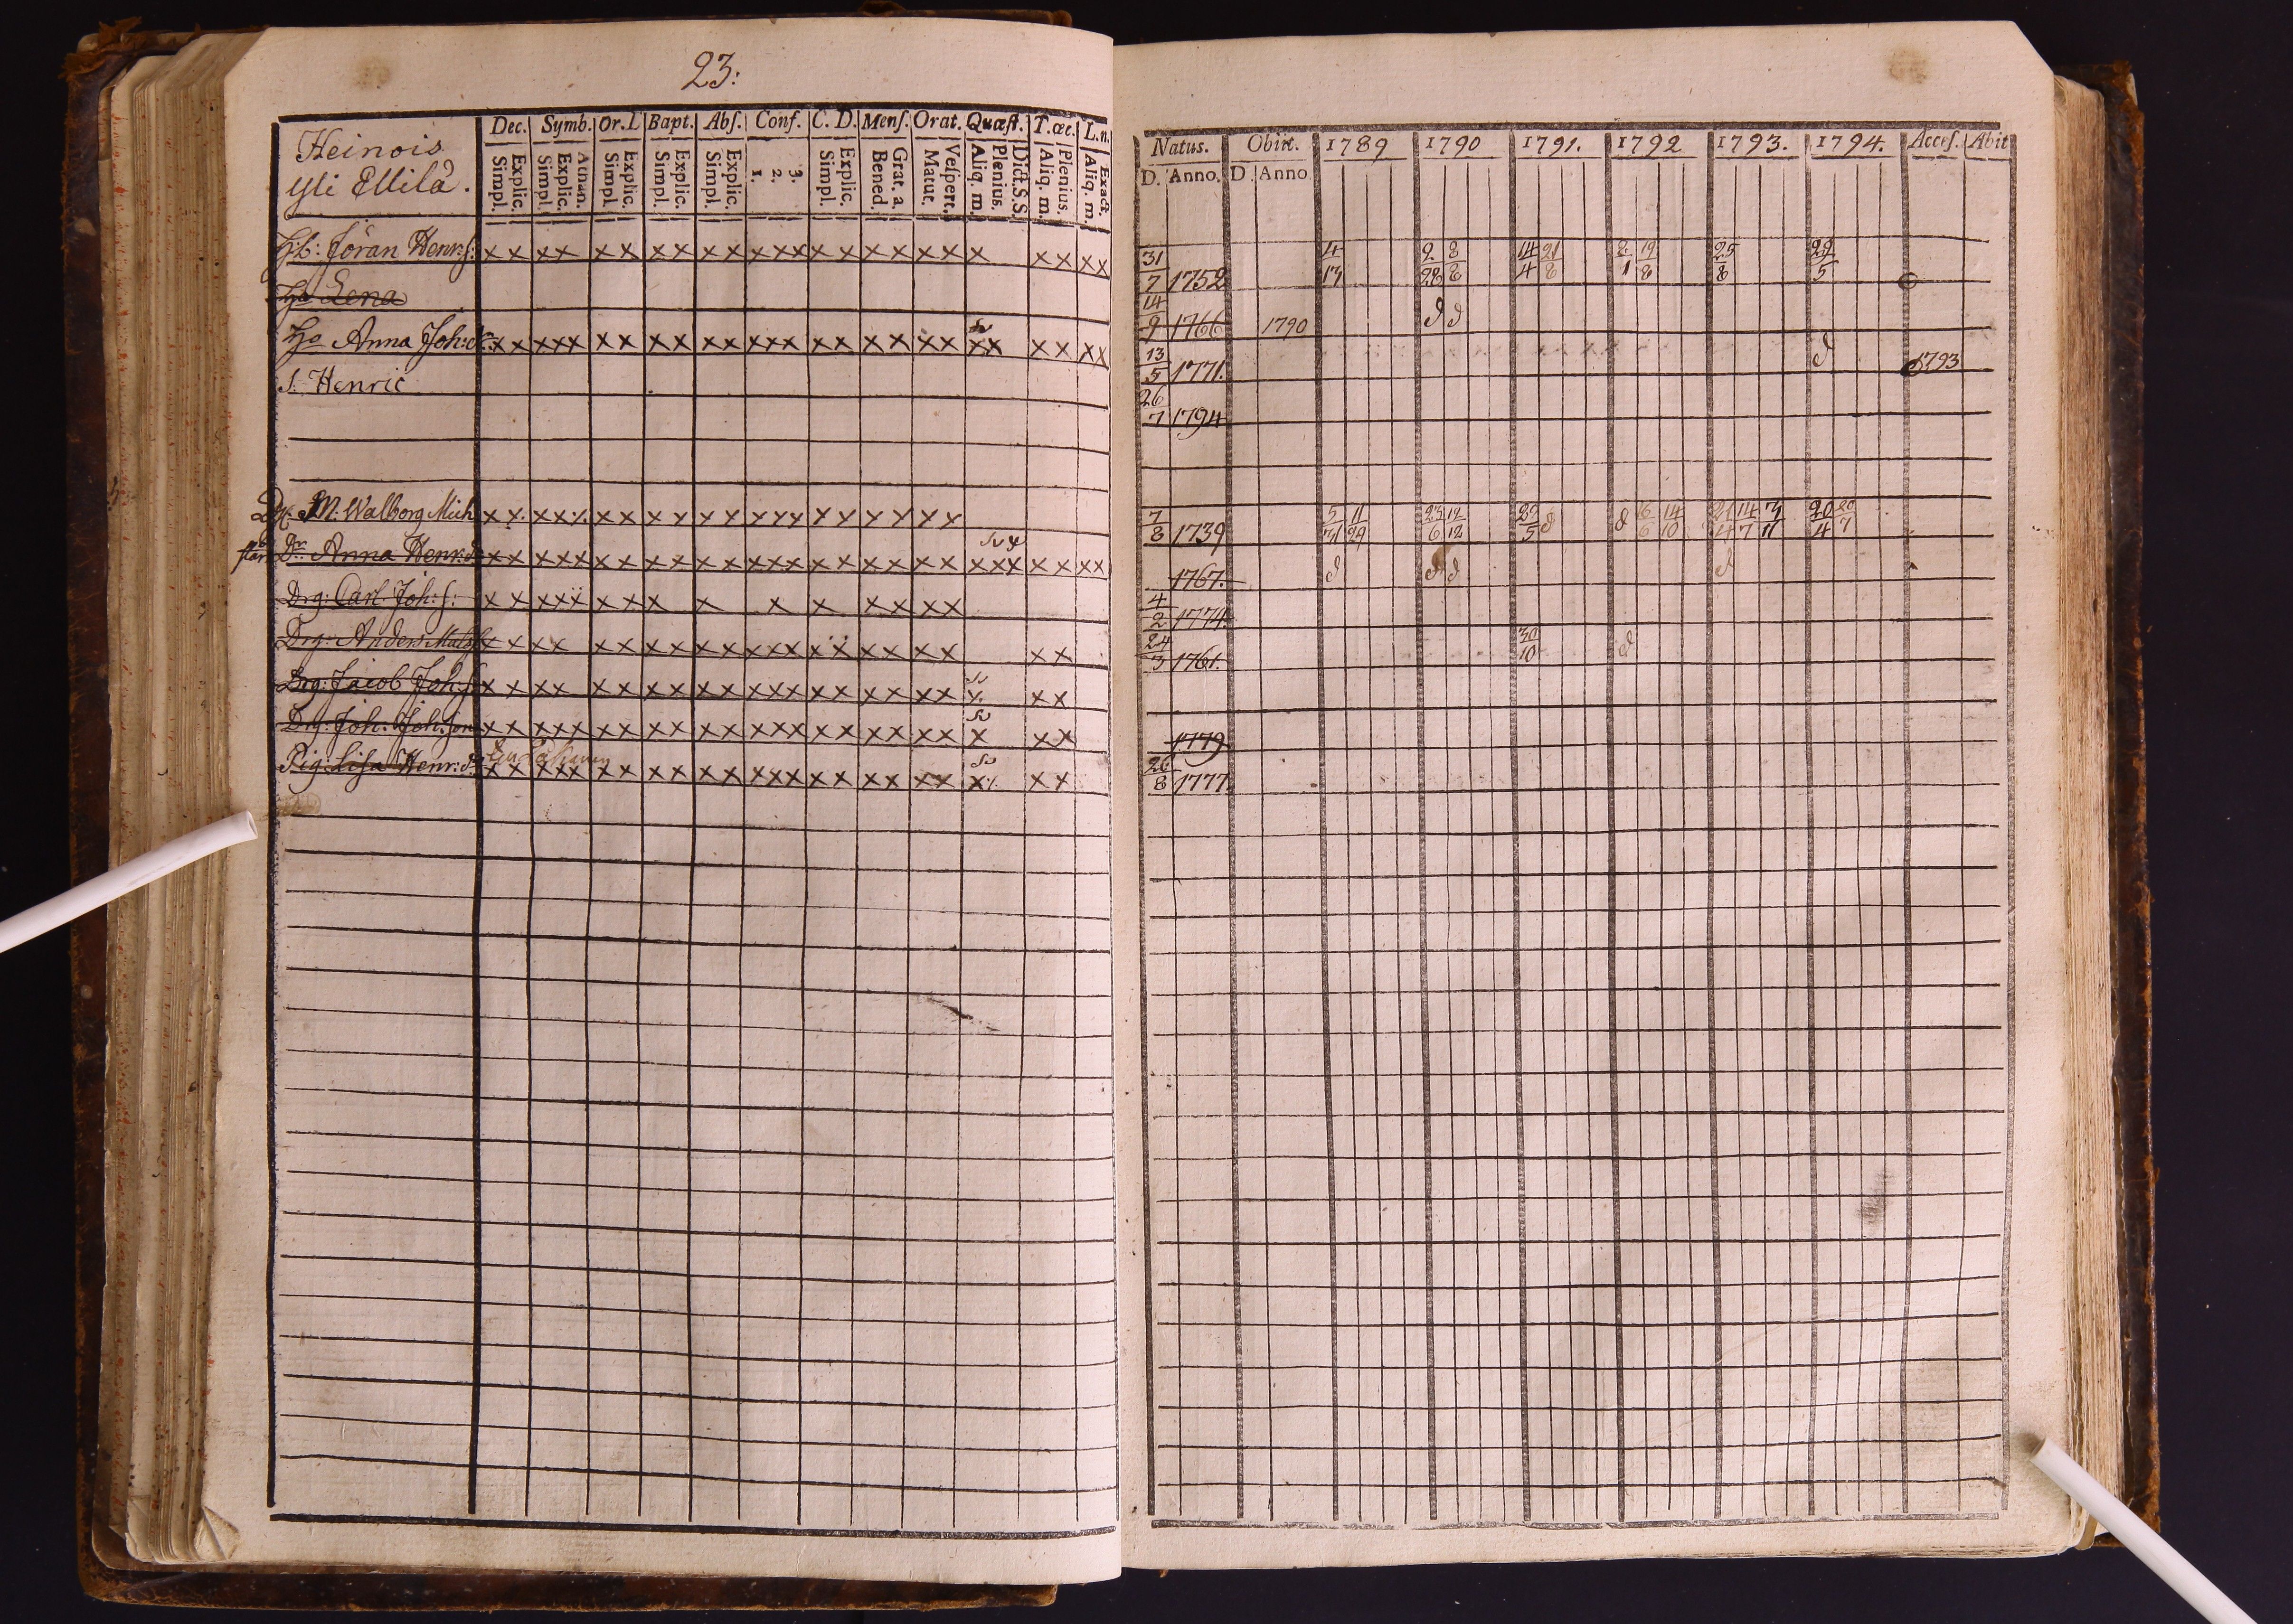 23:
Heinois
yli Ellilä.
Dec. Symb. Or.D Bapt. Abs. Conf. C. D. Mens. Orat. Quæst. T.œc. L.n.
Simpl. Explic. Simpl. Explic. Athan. Simpl. Explic. Simpl. Explic. Simpl. Explic. 1. 2. 3. Simpl. Explic. Bened. Grat. a. Matut. Vespert. Aliq. m. Plenius. Dict.S.S. Aliq. m. Plenius. Aliq. m. Exact.
Hb: Jöran Henr:s: x x x x x x x x x x x x x x x x x x x x x x x x
Ho Lena
Ho Anna Joh:dr x x x x x x x x x x x x x x x x x x x x x x x x x x
S. Henric
M: Walborg Mich x x x x x x x x x x x x x x x x x x x x
Dr Anna Henr:d x x x x x x x x x x x x x x x x x x x x x x x x x x x
Drg: Carl Joh:s: x x x x x x x x x x x x x x x x
Drg: Anders Mats x x x x x x x x x x x x x x x x x x x x x x
Drg: Jacob Joh:s x x x x x x x x x x x x x x x x x x x x x x x
Drg: Joh: Joh:son x x x x x x x x x x x x x x x x x x x x x x x x
Pig: Lisa Henr:d x x x x x x x x x x x x x x x x x x x x x x x x x
Natus. Obiit. 1789 1790 1791. 1792 1793. 1794. Acces. Abit
D. Anno. D. Anno
31/7 1752 4/13 2/28 8/8 14/4 21/8 8/1 19/8 25/8 29/5
14/9 1766 1790
13/5 1771. 1793
26/7 1794
7/8 1739 5/31 11/29 23/6 12/12 29/5 16/6 14/10 21/4 14/7 20/4 20/7
1767.
4/2 1774.
24/3 1761. 30/10
1779
26/8 1777.